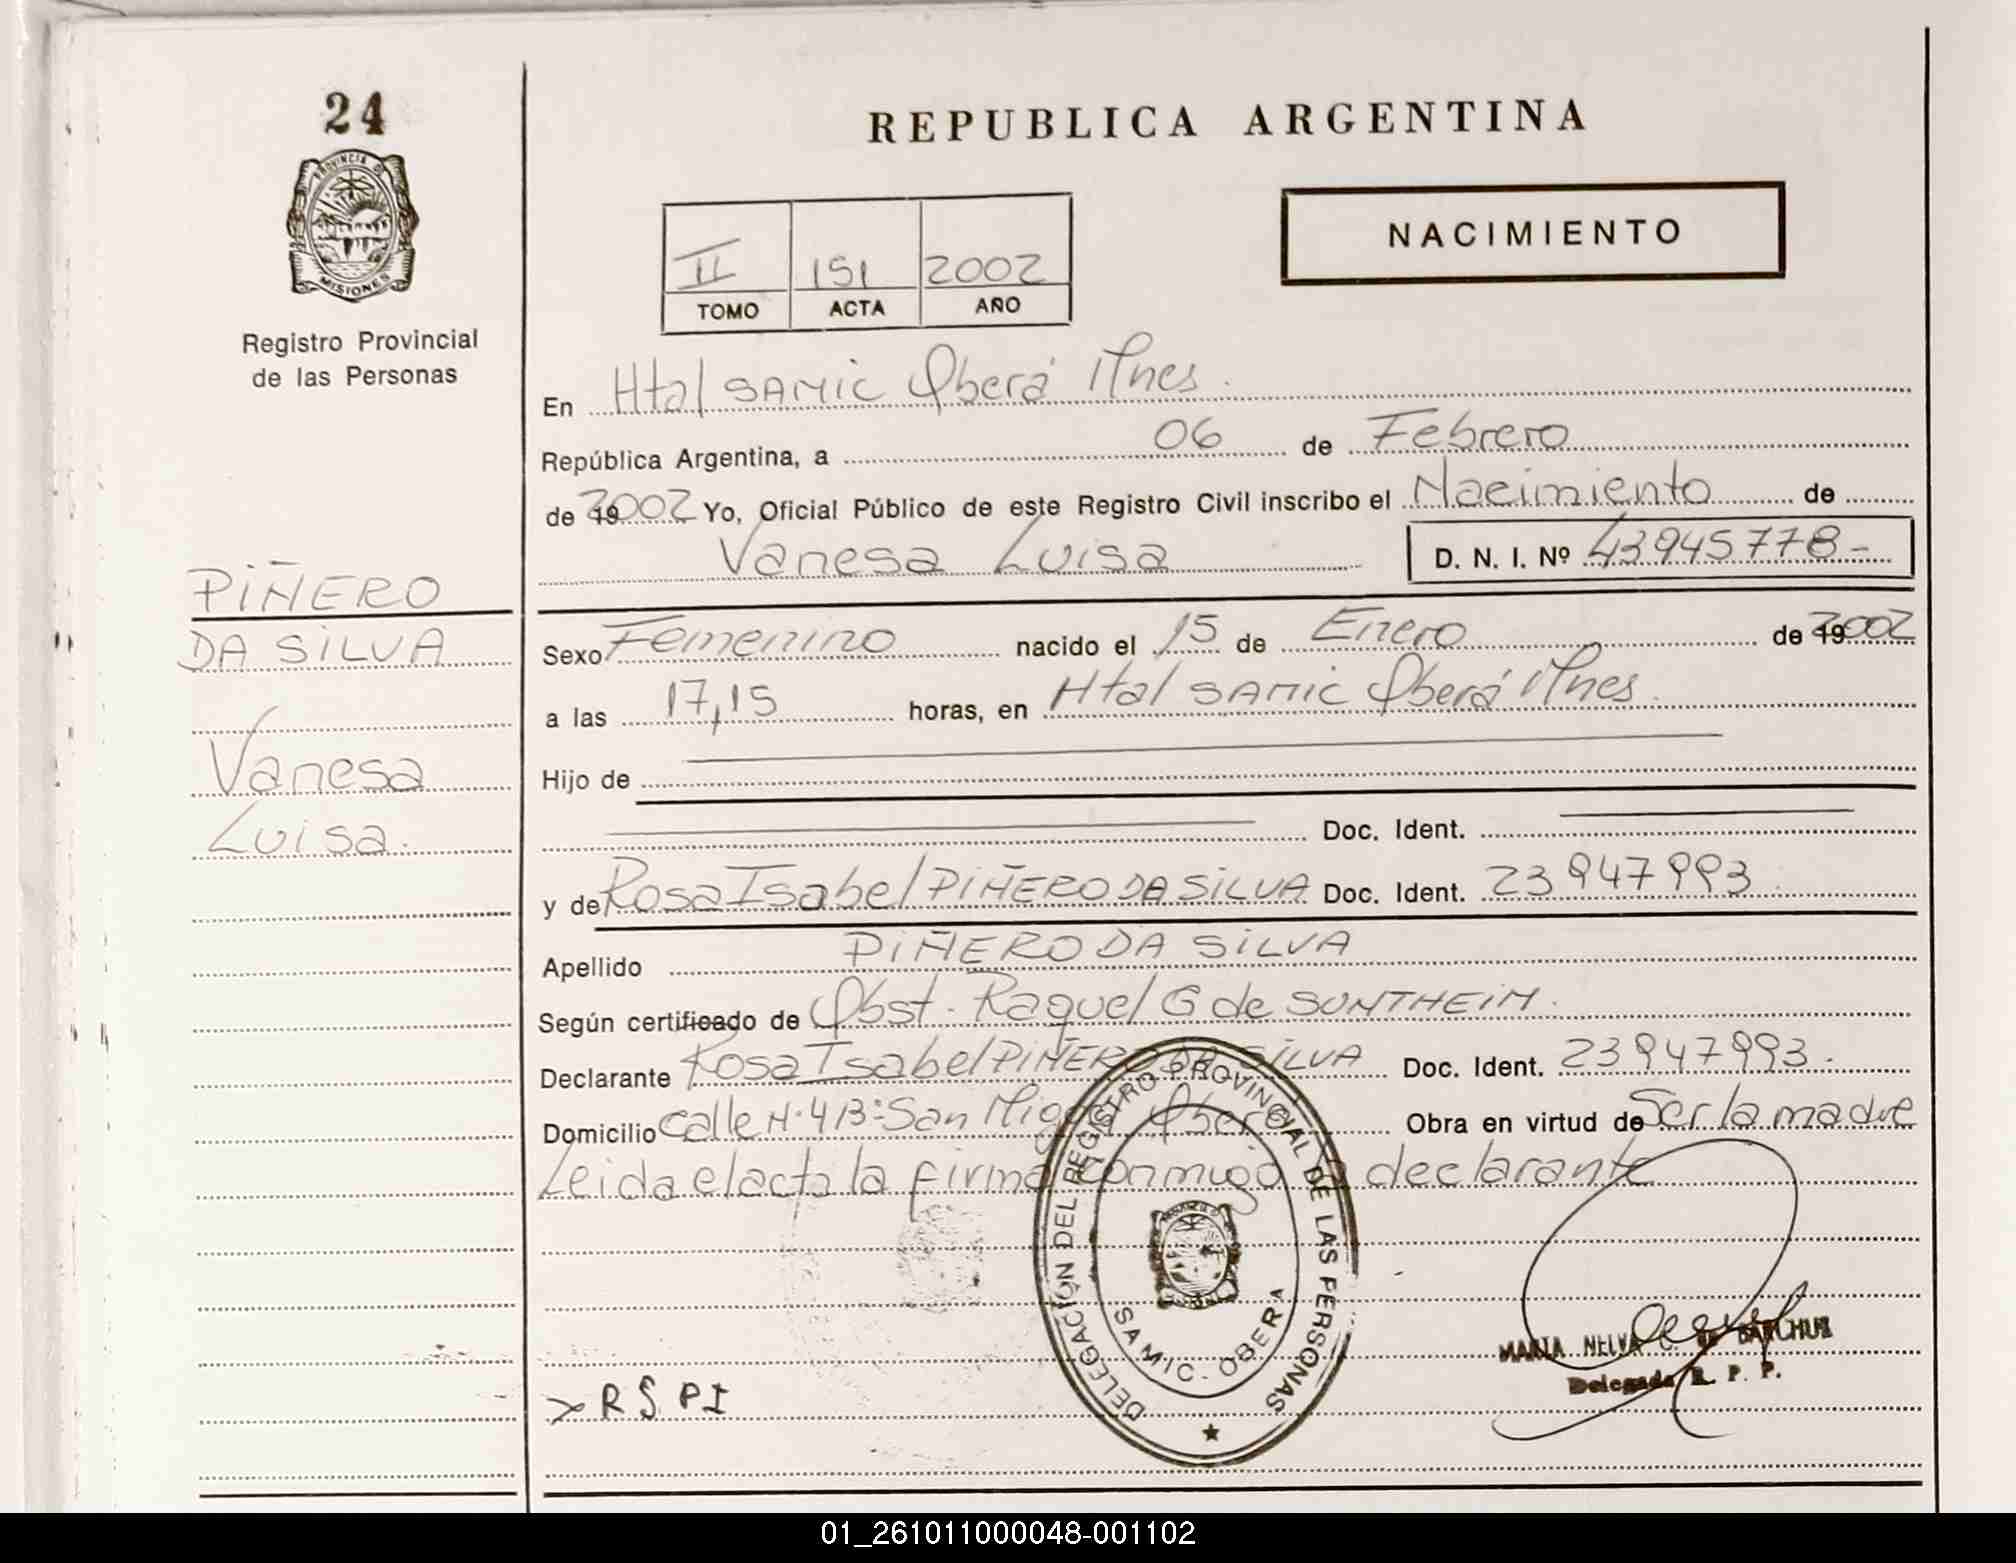 24
PROVINCIA DE
MISIONES
Registro Provincial
de las Personas
PIÑERO
DA SILVA
Vanesa
Luisa.
REPUBLICA ARGENTINA
NACIMIENTO
II 151 2002
TOMO ACTA AÑO
En Htal SAMIC Oberá Mnes.
República Argentina, a 06 de Febrero
de 2002 Yo, Oficial Público de este Registro Civil inscribo el Nacimiento de
Vanesa Luisa D. N. I. Nº 43945778-
Sexo Femenino nacido el 15 de Enero de 2002
a las 17,15 horas, en Htal SAMIC Oberá Mnes.
Hijo de
Doc. Ident.
y de Rosa Isabel PIÑERO DA SILVA Doc. Ident. 23947993
Apellido PIÑERO DA SILVA
Según certificado de Obst. Raquel G de SONTHEIM.
Declarante Rosa Isabel PIÑERO DA SILVA Doc. Ident. 23947993.
Domicilio Calle Nº 413: San Miguel Oberá Obra en virtud de Ser la madre
Leida el acta la firma conmigo la declarante
DELEGACIÓN DEL REGISTRO PROVINCIAL DE LAS PERSONAS
SAMIC - OBERA
MARIA NELVA C. DE
Delegada R. P. P.
R S PI
01_261011000048-001102